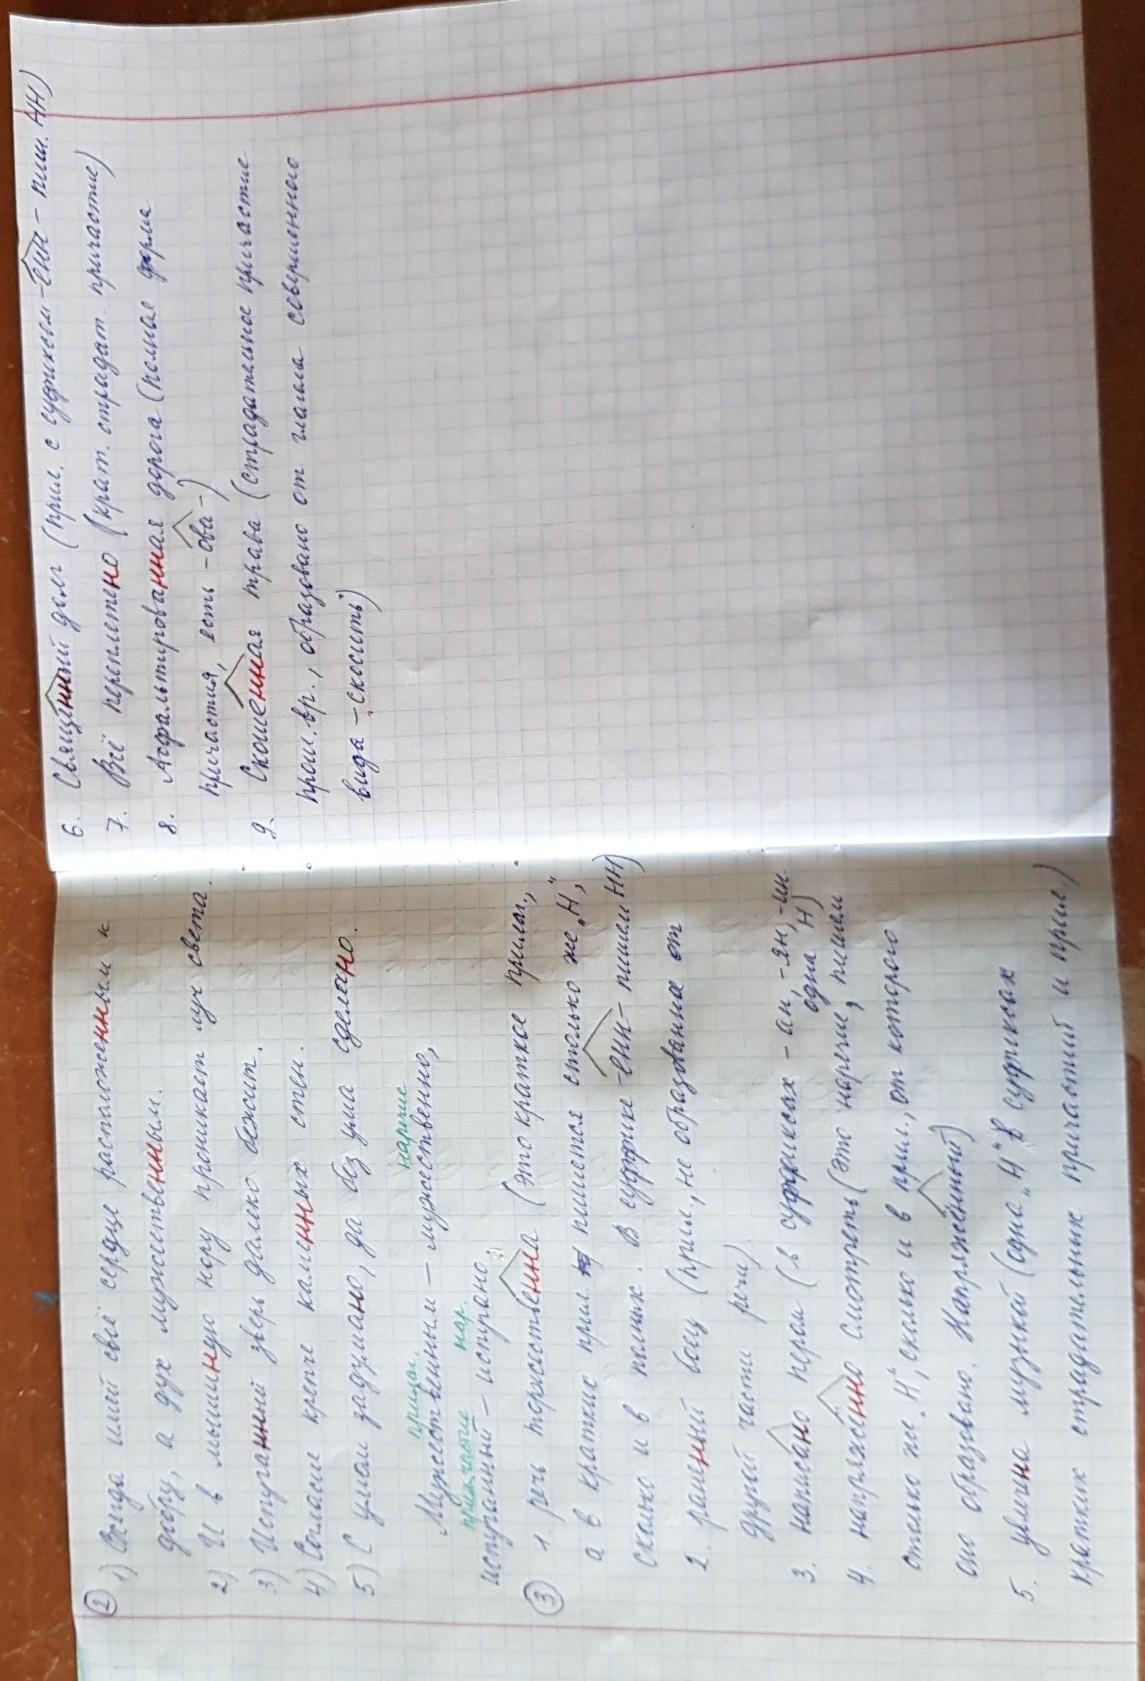 ② 1) Всегда имей своё сердце расположенным к
добру, а дух мужественным.
2) И в мышиную нору проникает луч света.
3) Испуганный зверь далеко бежит.
4) Согласие крепче каменных стен.
5) С умом задумано, да без ума сделано.
прилаг. наречие
Мужественным – мужественно,
причастие нар.
испуганный – испугано.
③ 1. речь торжественна (это краткое прилаг.,
а в кратких прил. пишется столько же „Н",
сколько и в полных. В суффиксе -енн- пишем НН)
2. раменный боец (прил., не образованное от
другой части речи)
3. написано пером (в суффиксах -ан, -ян, -ин
одна Н)
4. напряженно смотреть (это наречие, пишем
столько же „Н", сколько и в прил., от которого
оно образовано. Напряжённый)
5. увлечена музыкой (одна „Н" в суффиксах
кратких страдательных причастий и прил.)
6. Священный долг (прил. с суффиксом -енн- пиш. НН)
7. Всё переплетено (крат. страдат. причастие)
8. Асфальтированная дорога (полная форма
причастия, есть -ова-)
9. Скошенная трава (страдательное причастие
прош. вр., образовано от глагола совершенного
вида – скосить)